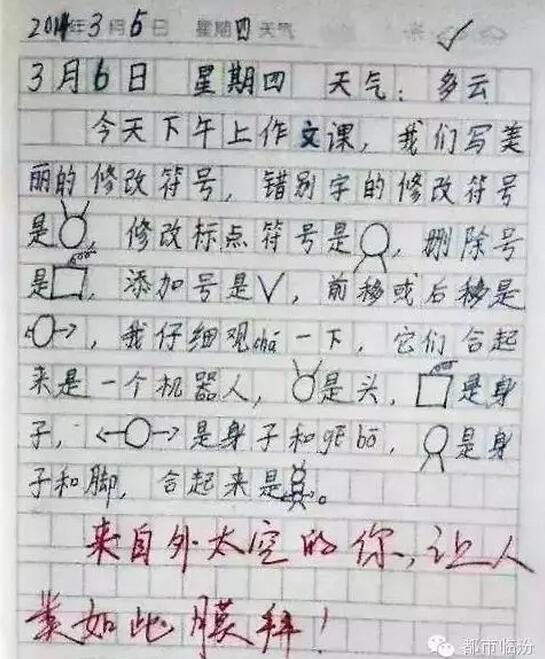 2014年3月6日 星期四天气
3月6日 星期四 天气：多云
今天下午上作文课，我们写美
丽的修改符号，错别字的修改符号
是 修改标点符号是 ，删除号
是 ，添加号是V，前移或后移是
，我仔细观chá一下，它们合起
来是一个机器人， 是头， 是身
子， 是身子和gē bō， 是身
子和脚，合起来是 。
来自外太空的你，让人
类如此膜拜！
都市临汾